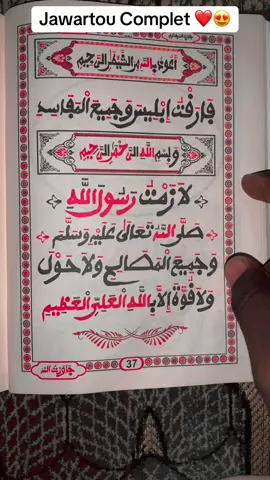 Jawartou Complet ❤️😍
أعوذ بالله من الشيطان الرجيم
فارقت إبليس وجميع المفاسد
وبسم الله الرحمن الرحيم
لازمت رسول الله
صلى الله تعالى عليه وسلم
وجميع المصالح ولا حول
ولا قوة إلا بالله العلي العظيم
37